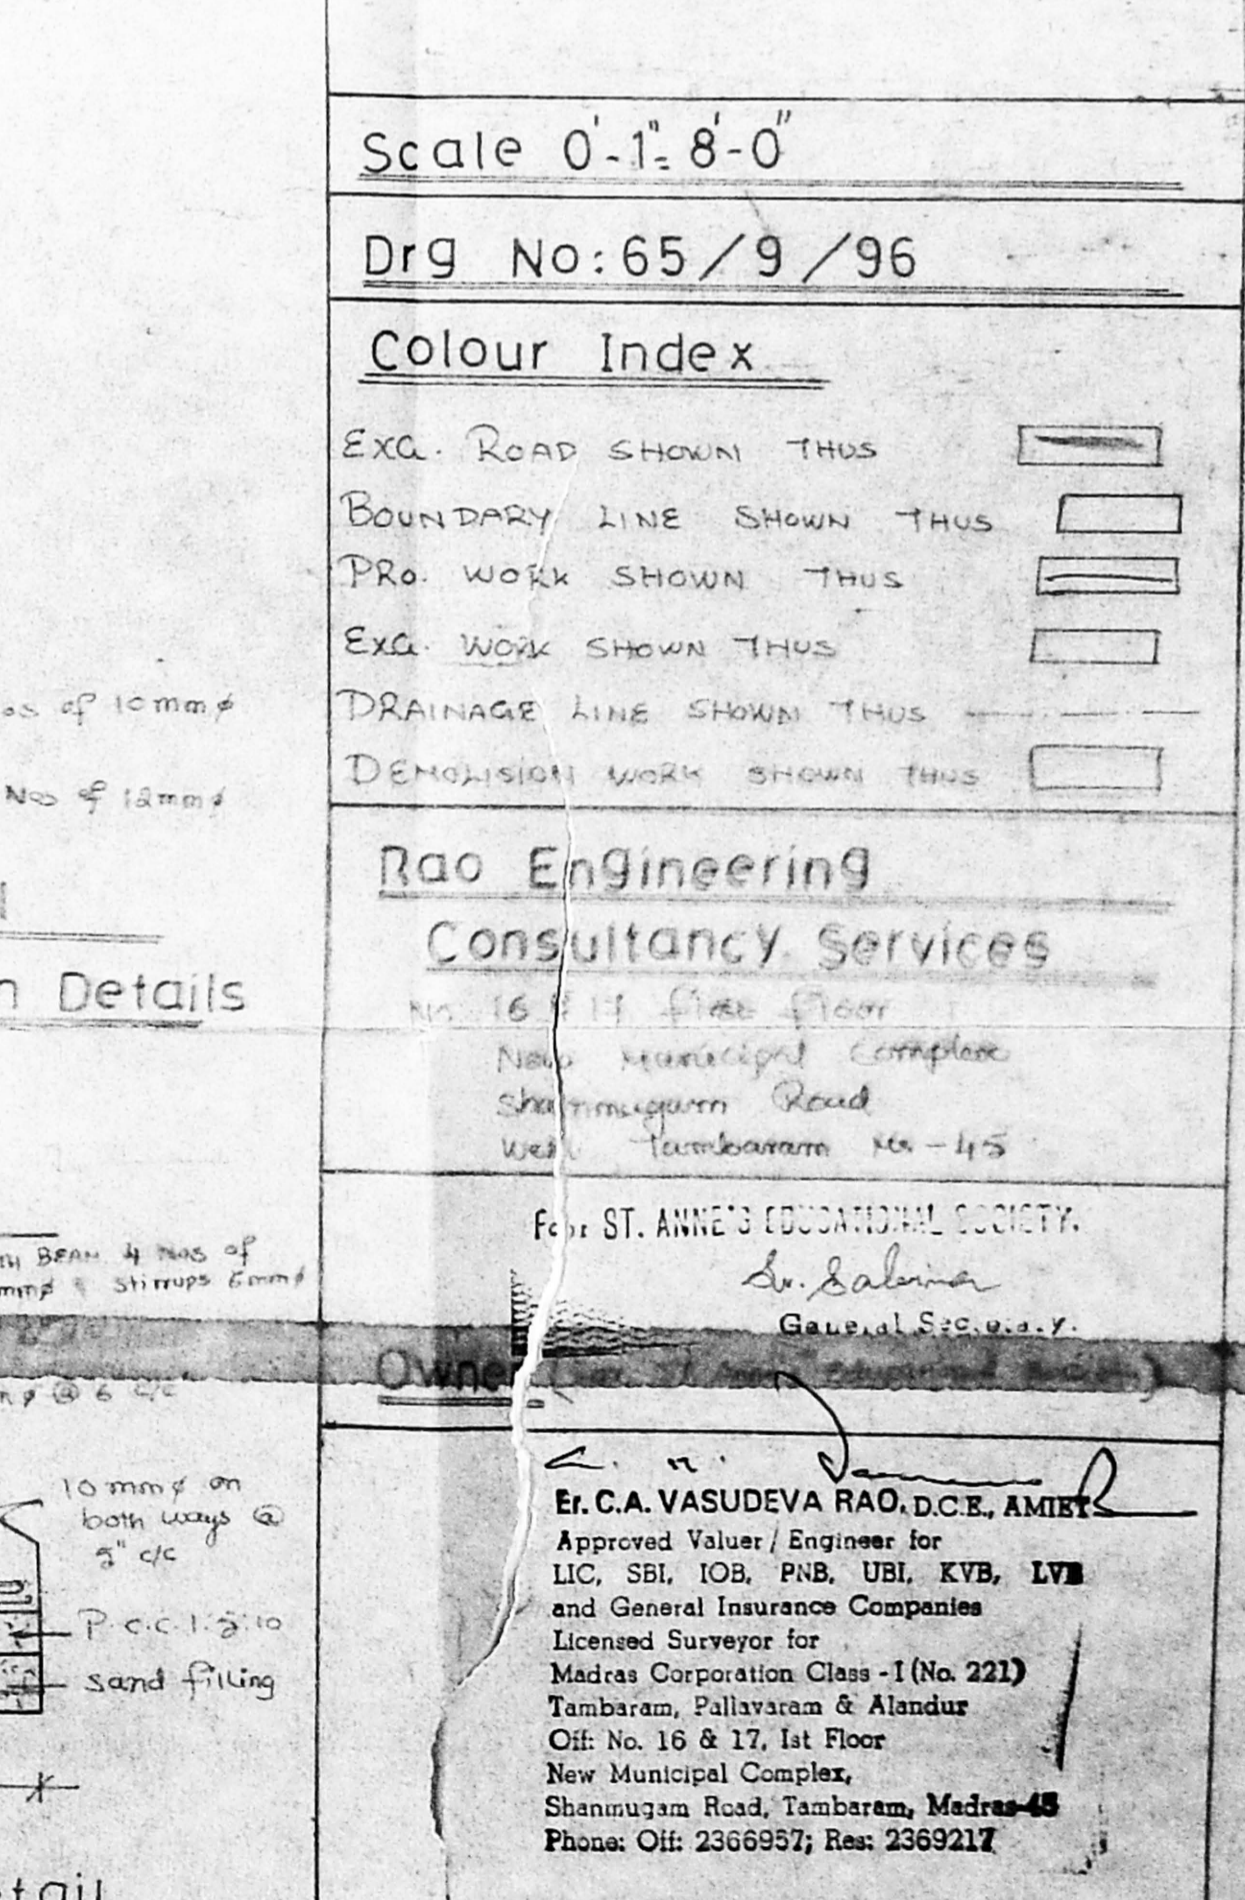 Scale 0'-1"= 8'-0"
Drg No: 65/9/96
Colour Index
Exg. ROAD SHOWN THUS
BOUNDARY LINE SHOWN THUS
PRo. WORK SHOWN THUS
Exg. WORK SHOWN THUS
DRAINAGE LINE SHOWN THUS
DEMOLISION WORK SHOWN THUS
Rao Engineering
Consultancy Services
No. 16 & 17 first floor
New Municipal Complex
Shanmugam Road
West Tambaram Ms-45
For ST. ANNE'S EDUCATIONAL SOCIETY.
Sr.
General Secretary.
Owner
Er. C.A. VASUDEVA RAO, D.C.E., AMIET
Approved Valuer / Engineer for
LIC, SBI, IOB, PNB, UBI, KVB, LVB
and General Insurance Companies
Licensed Surveyor for
Madras Corporation Class - I (No. 221)
Tambaram, Pallavaram & Alandur
Off: No. 16 & 17, Ist Floor
New Municipal Complex,
Shanmugam Road, Tambaram, Madras-45
Phone: Off: 2366957; Res: 2369217
of 10mmø
Nos of 12mmø
Details
BEAM 4 Nos of
mmø & stirrups 6mmø
@ 6 c/c
10mmø on
both ways @
5" c/c
P.C.C 1:5:10
sand filling